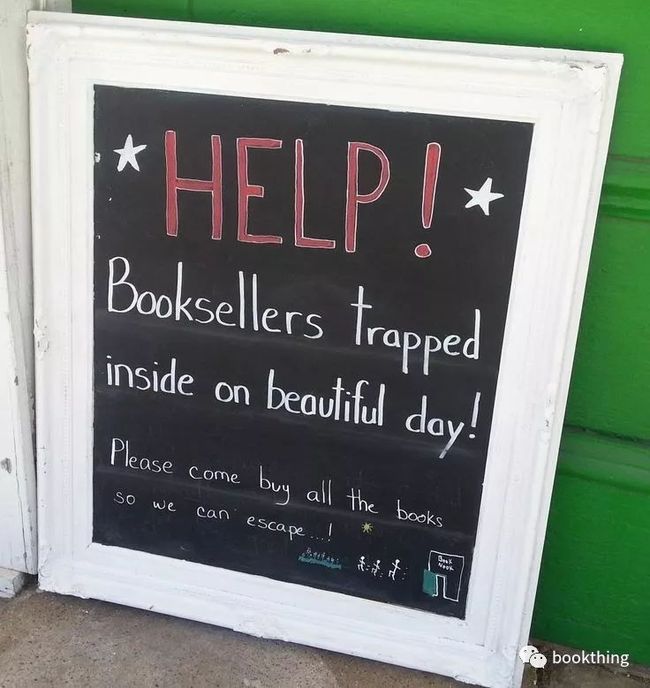 HELP!
Booksellers trapped
inside on beautiful day!
Please come buy all the books
so we can escape...!
Book
Nook
bookthing